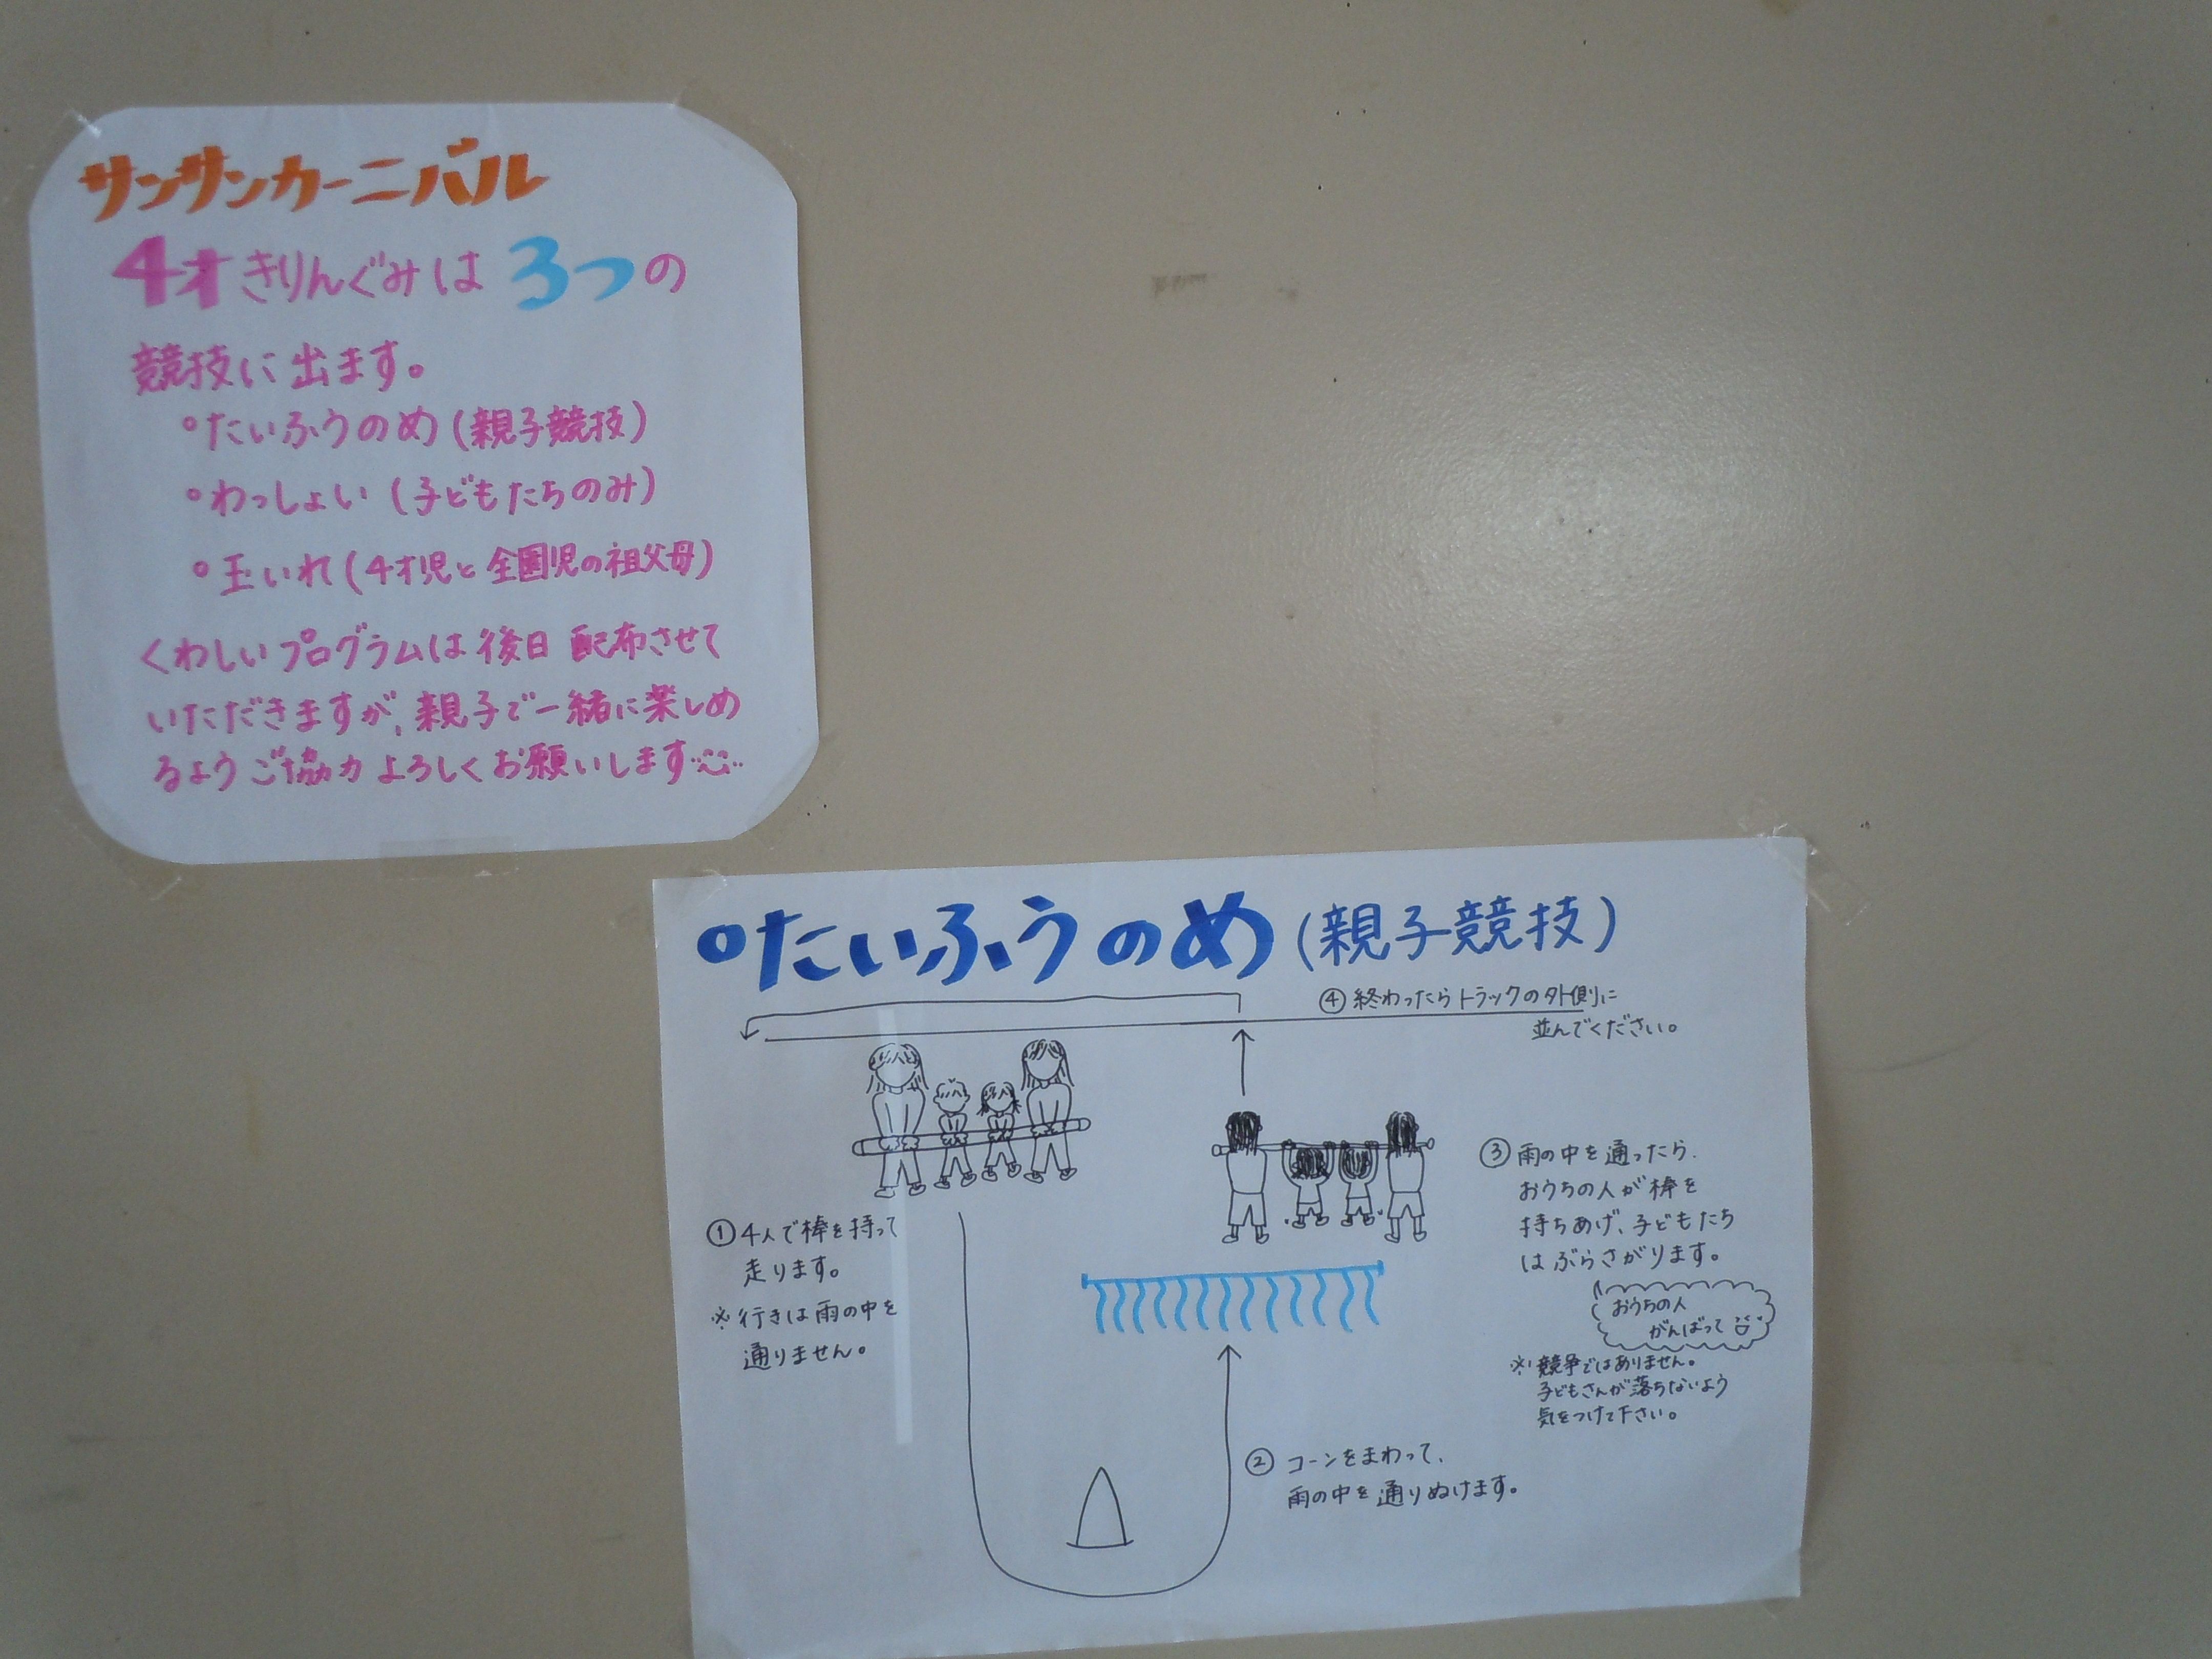 サンサンカーニバル
4才きりんぐみは3つの
競技に出ます。
°たいふうのめ(親子競技)
°わっしょい(子どもたちのみ)
°玉いれ(4才児と全園児の祖父母)
くわしいプログラムは後日配布させて
いただきますが、親子で一緒に楽しめ
るようご協力よろしくお願いします
°たいふうのめ(親子競技)
④終わったらトラックの外側に
並んでください。
①4人で棒を持って
走ります。
※行きは雨の中を
通りません。
③雨の中を通ったら、
おうちの人が棒を
持ちあげ、子どもたち
はぶらさがります。
おうちの人
がんばって
※競争ではありません。
子どもさんが落ちないよう
気をつけて下さい。
②コーンをまわって、
雨の中を通りぬけます。